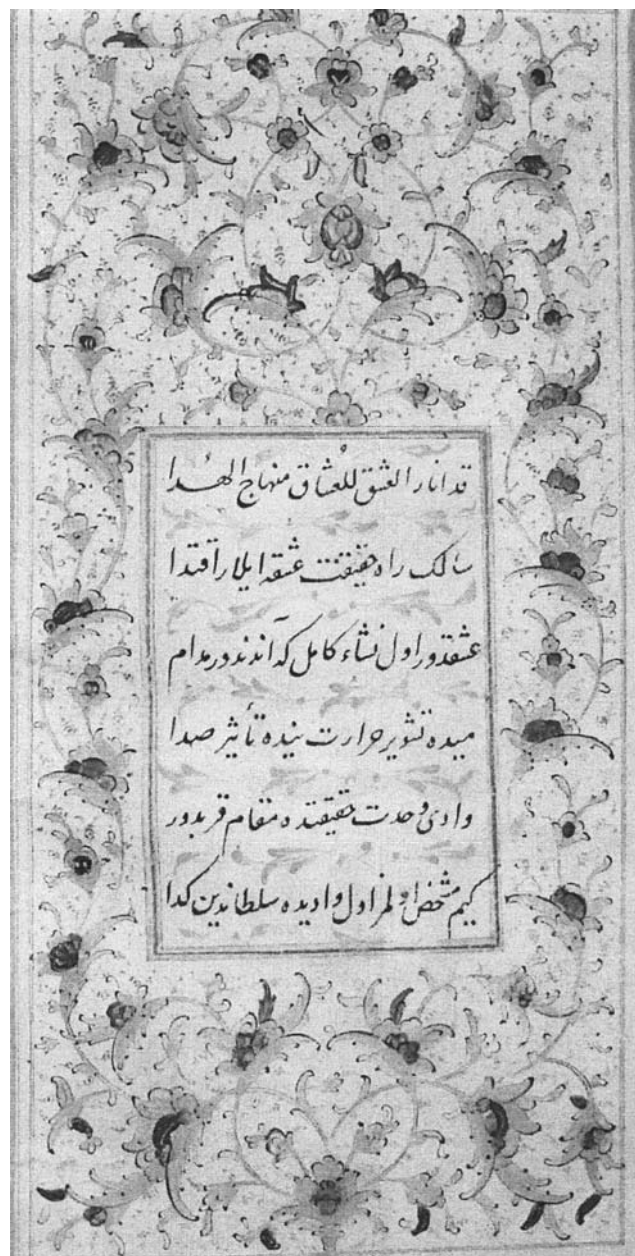 قد انار العشق للعُشاق منهاج الهُدا
سالک راه حقیقت عشقه ایلار اقتدا
عشقدور اول نشاء کامل که آندندور مدام
میده تشویر حرارت نیده تأثیر صدا
وادی وحدت حقیقتده مقام قربدور
کیم مشخص اولمز اول وادیده سلطاندین کدا